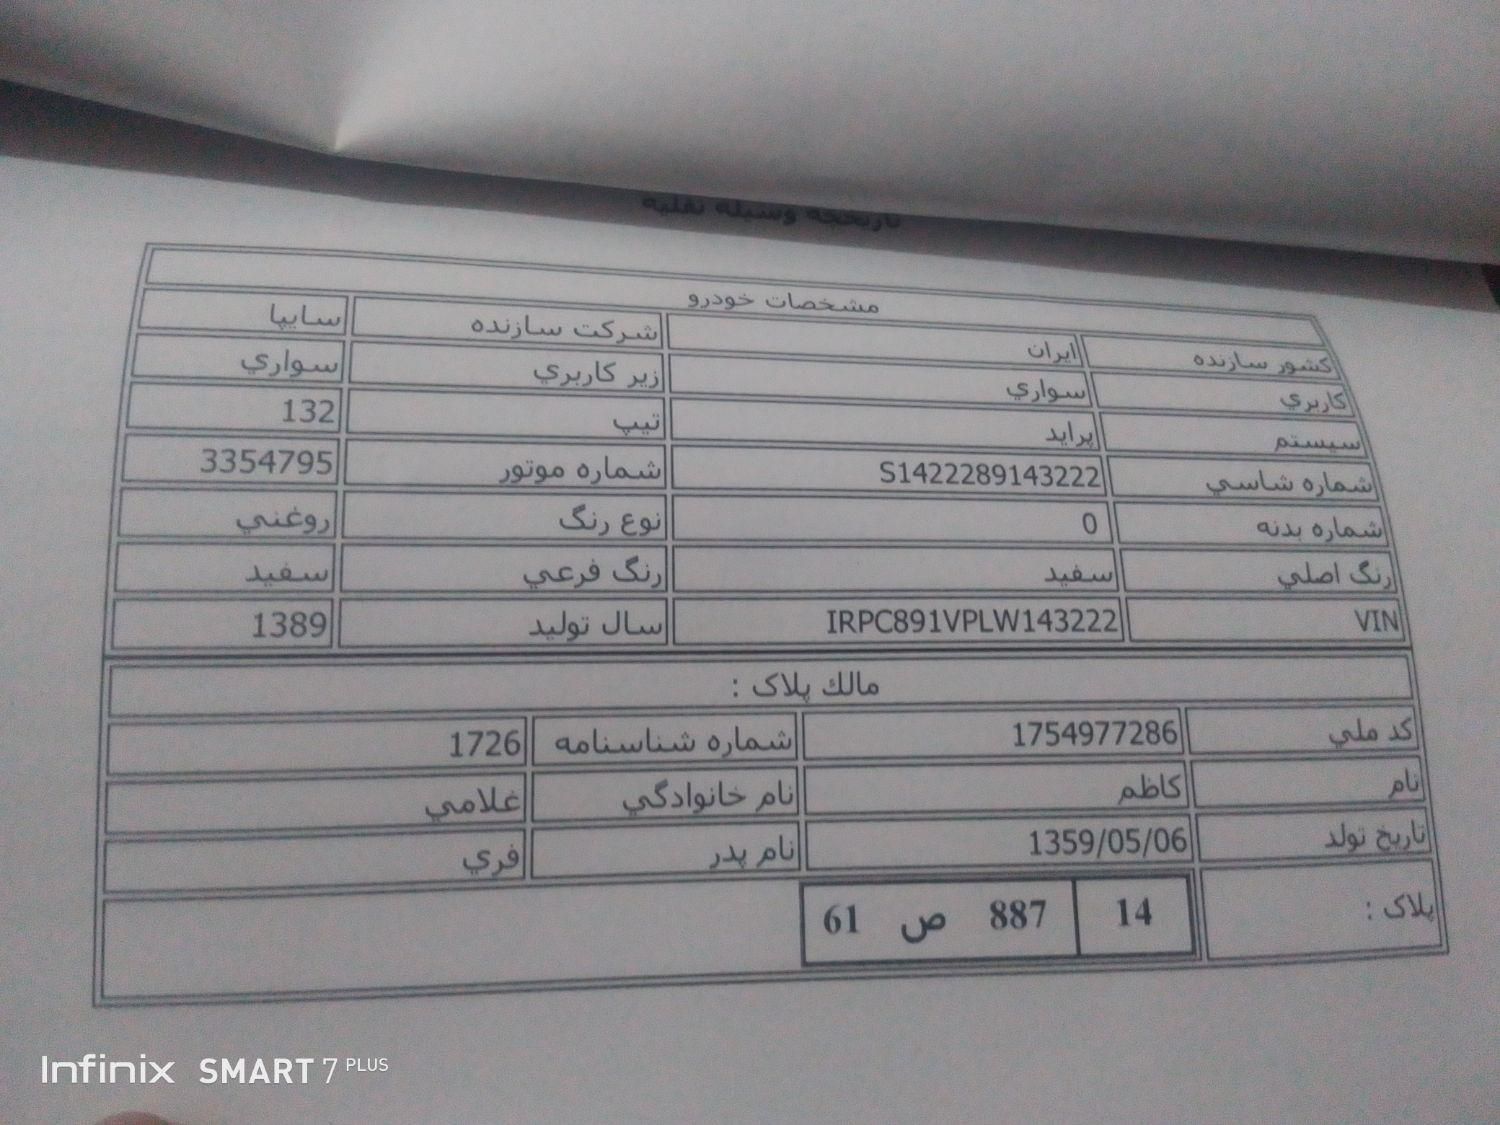 تاریخچه وسیله نقلیه
مشخصات خودرو
کشور سازنده ایران شرکت سازنده سایپا
کاربري سواري زیر کاربري سواري
سیستم پراید تیپ 132
شماره شاسي S1422289143222 شماره موتور 3354795
شماره بدنه 0 نوع رنگ روغني
رنگ اصلي سفید رنگ فرعي سفید
VIN IRPC891VPLW143222 سال تولید 1389
مالك پلاک :
کد ملي 1754977286 شماره شناسنامه 1726
نام کاظم نام خانوادگي غلامي
تاریخ تولد 1359/05/06 نام پدر فري
پلاک : 14 887 ص 61
Infinix SMART 7 PLUS